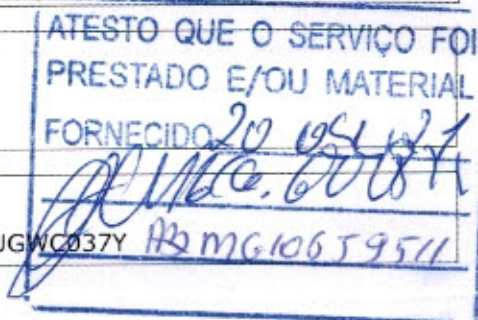 ATESTO QUE O SERVIÇO FOI
PRESTADO E/OU MATERIAL
FORNECIDO 20
JGWC037Y MG10659511